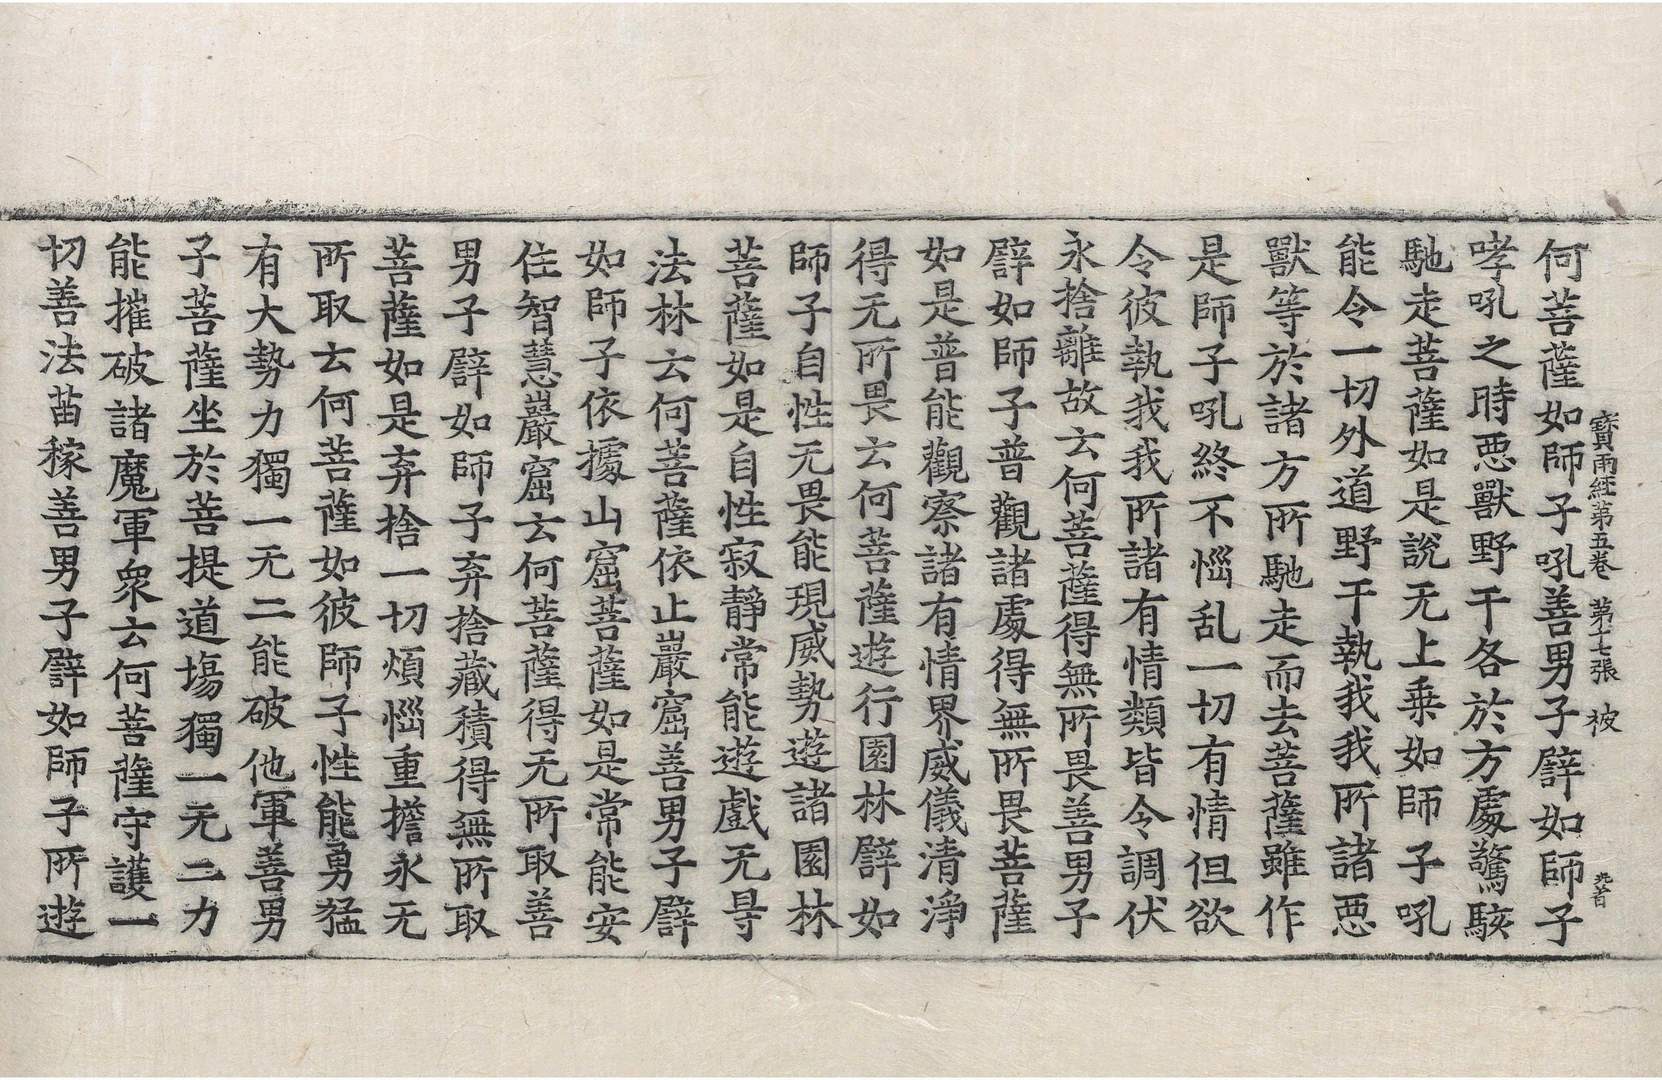 何菩薩如師子吼善男子譬如師子
寳雨經第五卷 第十七張 被
哮吼之時惡獸野干各於方處驚駭
馳走菩薩如是說无上乗如師子吼
能令一切外道野干執我我所諸惡
獸等於諸方所馳走而去菩薩雖作
是師子吼終不惱乱一切有情但欲
令彼執我我所諸有情類皆令調伏
永捨離故云何菩薩得無所畏善男子
譬如師子普觀諸處得無所畏菩薩
如是普能觀察諸有情界威儀清淨
得无所畏云何菩薩遊行園林譬如
師子自性无畏能現威勢遊諸園林
菩薩如是自性寂靜常能遊戲无㝵
法林云何菩薩依止巖窟善男子譬
如師子依據山窟菩薩如是常能安
住智慧巖窟云何菩薩得无所取善
男子譬如師子弃捨藏積得無所取
菩薩如是弃捨一切煩惱重擔永无
所取云何菩薩如彼師子性能勇猛
有大勢力獨一无二能破他軍善男
子菩薩坐於菩提道場獨一无二力
能摧破諸魔軍衆云何菩薩守護一
切善法苗稼善男子譬如師子所遊